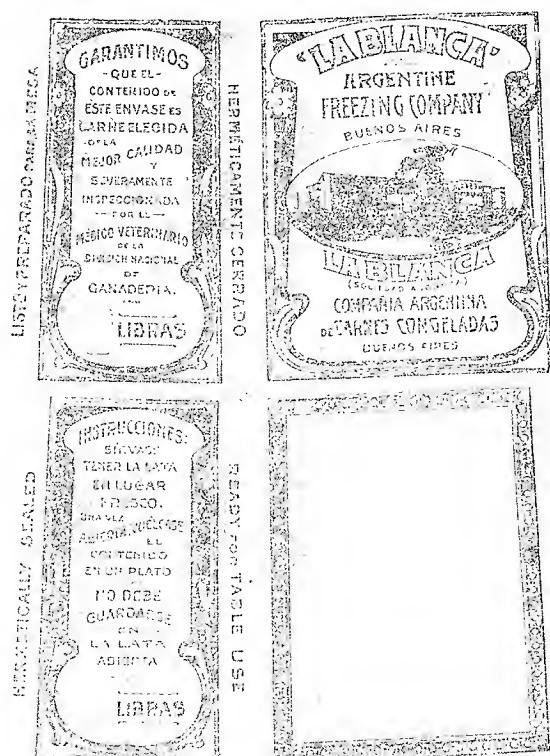 LISTO Y PREPARADO PARA LA MESA
GARANTIMOS
-QUE EL-
CONTENIDO DE
ESTE ENVASE ES
CARNE ELEGIDA
-DE LA
MEJOR CALIDAD
Y
SEVERAMENTE
INSPECCIONADA
-POR EL-
MÉDICO VETERINARIO
DE LA
DIVISION NACIONAL
DE
GANADERIA.
LIBRAS
HERMÉTICAMENTE CERRADO
"LA BLANCA"
ARGENTINE
FREEZING COMPANY
BUENOS AIRES
LA BLANCA
COMPAÑIA ARGENTINA
DE CARNES CONGELADAS
BUENOS AIRES
HERMETICALLY SEALED
INSTRUCCIONES:
SÍRVASE
TENER LA LATA
EN LUGAR
FRESCO.
UNA VEZ
ABIERTA, VUÉLCASE
EL
CONTENIDO
EN UN PLATO
NO DEBE
GUARDARSE
EN
LA LATA
ABIERTA
LIBRAS
READY FOR TABLE USE